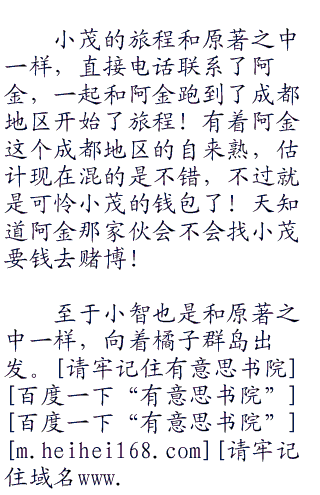 小茂的旅程和原著之中
一样，直接电话联系了阿
金，一起和阿金跑到了成都
地区开始了旅程！有着阿金
这个成都地区的自来熟，估
计现在混的是不错，不过就
是可怜小茂的钱包了！天知
道阿金那家伙会不会找小茂
要钱去赌博！
至于小智也是和原著之
中一样，向着橘子群岛出
发。[请牢记住有意思书院]
[百度一下“有意思书院”]
[百度一下“有意思书院”]
[m.heihei168.com][请牢记
住域名www.